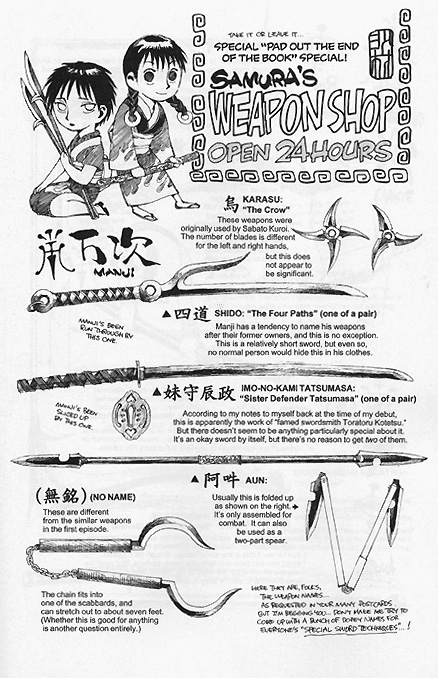 TAKE IT OR LEAVE IT...
SPECIAL "PAD OUT THE END
OF THE BOOK" SPECIAL!
SAMURA'S
WEAPON SHOP
OPEN 24 HOURS
烏 KARASU:
"The Crow"
These weapons were
originally used by Sabato Kuroi.
The number of blades is different
for the left and right hands,
but this does
not appear to
be significant.
万次
MANJI
▲ 四道 SHIDO: "The Four Paths" (one of a pair)
MANJI'S BEEN
RUN THROUGH BY
THIS ONE.
Manji has a tendency to name his weapons
after their former owners, and this is no exception.
This is a relatively short sword, but even so,
no normal person would hide this in his clothes.
▲ 妹守辰政 IMO-NO-KAMI TATSUMASA:
"Sister Defender Tatsumasa" (one of a pair)
MANJI'S BEEN
SLICED UP
BY THIS ONE.
According to my notes to myself back at the time of my debut,
this is apparently the work of "famed swordsmith Toratoru Kotetsu."
But there doesn't seem to be anything particularly special about it.
It's an okay sword by itself, but there's no reason to get two of them.
▲ 阿吽 AUN:
Usually this is folded up
as shown on the right. →
It's only assembled for
combat. It can also
be used as a
two-part spear.
(無銘) (NO NAME)
These are different
from the similar weapons
in the first episode.
The chain fits into
one of the scabbards, and
can stretch out to about seven feet.
(Whether this is good for anything
is another question entirely.)
HERE THEY ARE, FOLKS,
THE WEAPON NAMES...
AS REQUESTED IN YOUR MANY POSTCARDS
BUT I'M BEGGING YOU... DON'T MAKE ME TRY TO
COME UP WITH A BUNCH OF DOPEY NAMES FOR
EVERYONE'S "SPECIAL SWORD TECHNIQUES"...!